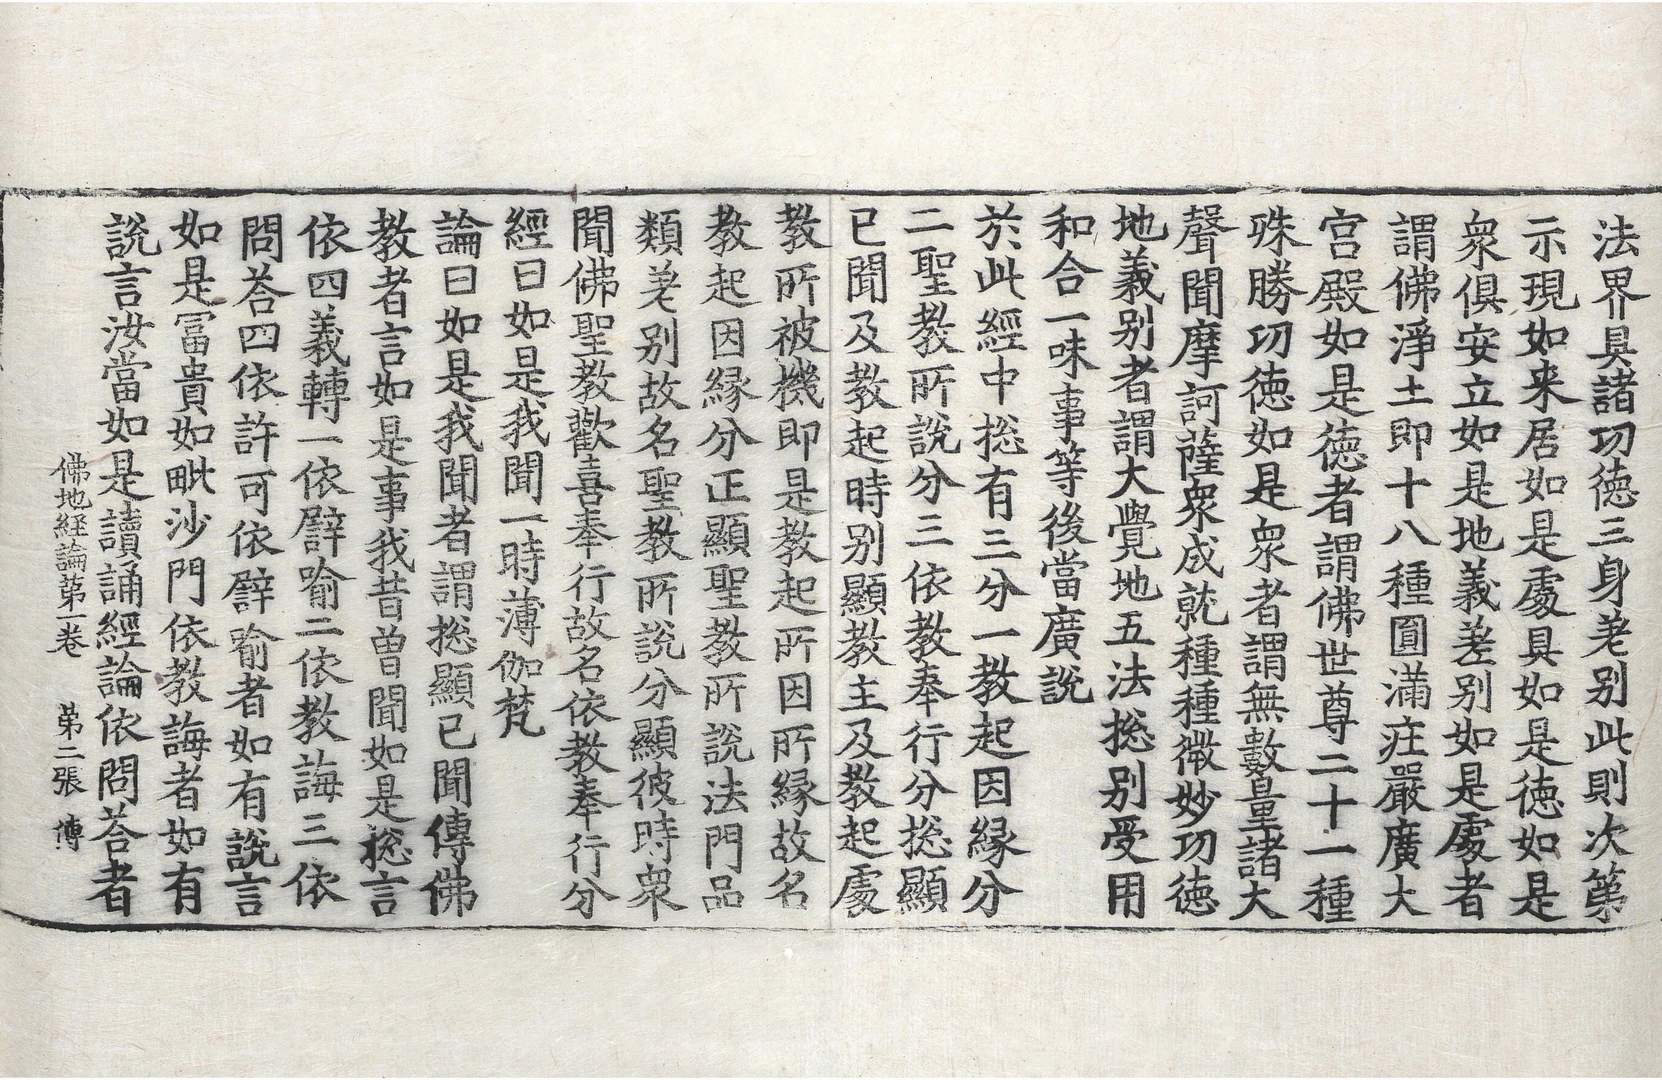 法界具諸功徳三身差别此則次第
示現如来居如是處具如是徳如是
衆俱安立如是地義差别如是處者
謂佛淨土即十八種圓滿疘嚴廣大
宫殿如是徳者謂佛世尊二十一種
殊勝功徳如是衆者謂無數量諸大
聲聞摩訶薩衆成就種種微妙功徳
地義别者謂大覺地五法揔别受用
和合一味事等後當廣說
於此經中揔有三分一教起因縁分
二聖教所說分三依教奉行分揔顯
已聞及教起時别顯教主及教起處
教所被機即是教起所因所縁故名
教起因縁分正顯聖教所説法門品
類差别故名聖教所説分顯彼時衆
聞佛聖教歡喜奉行故名依教奉行分
經曰如是我聞一時薄伽梵
論曰如是我聞者謂揔顯已聞傳佛
教者言如是事我昔曽聞如是揔言
依四義轉一依譬喻二依教誨三依
問荅四依許可依譬喻者如有說言
如是冨貴如毗沙門依教誨者如有
說言汝當如是讀誦經論依問荅者
佛地経論第一卷 第二張 傳